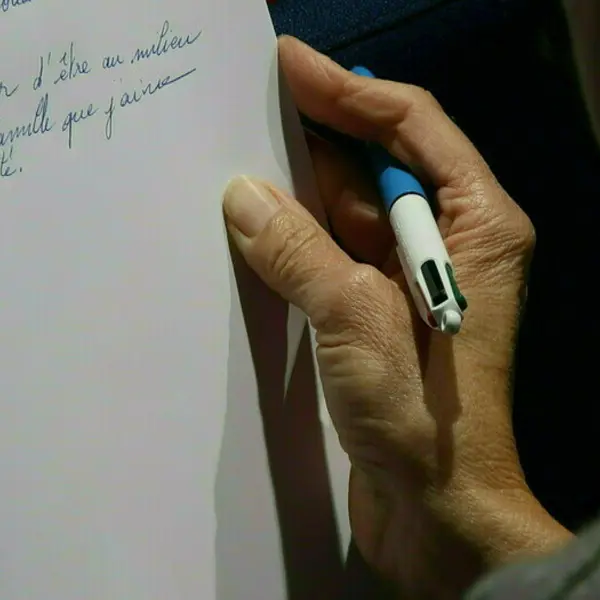 d'être au milieu
famille que j'aime
té.